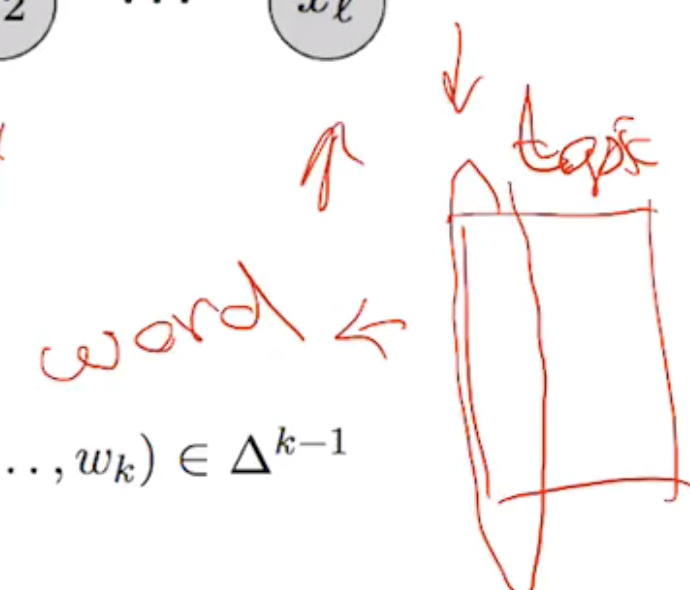 2 ⋯ x_ℓ
topic
word
. . , w_k) ∈ Δ^{k−1}